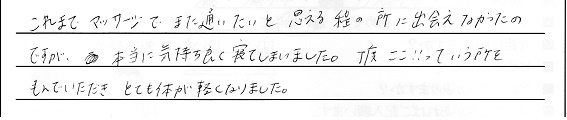 これまで マッサージで また通いたいと 思える 程の 所に出会えなかったの
ですが、 本当に気持ち良く寝てしまいました。 T度 ここ!!っていう所を
もんでいただき とても体が軽くなりました。